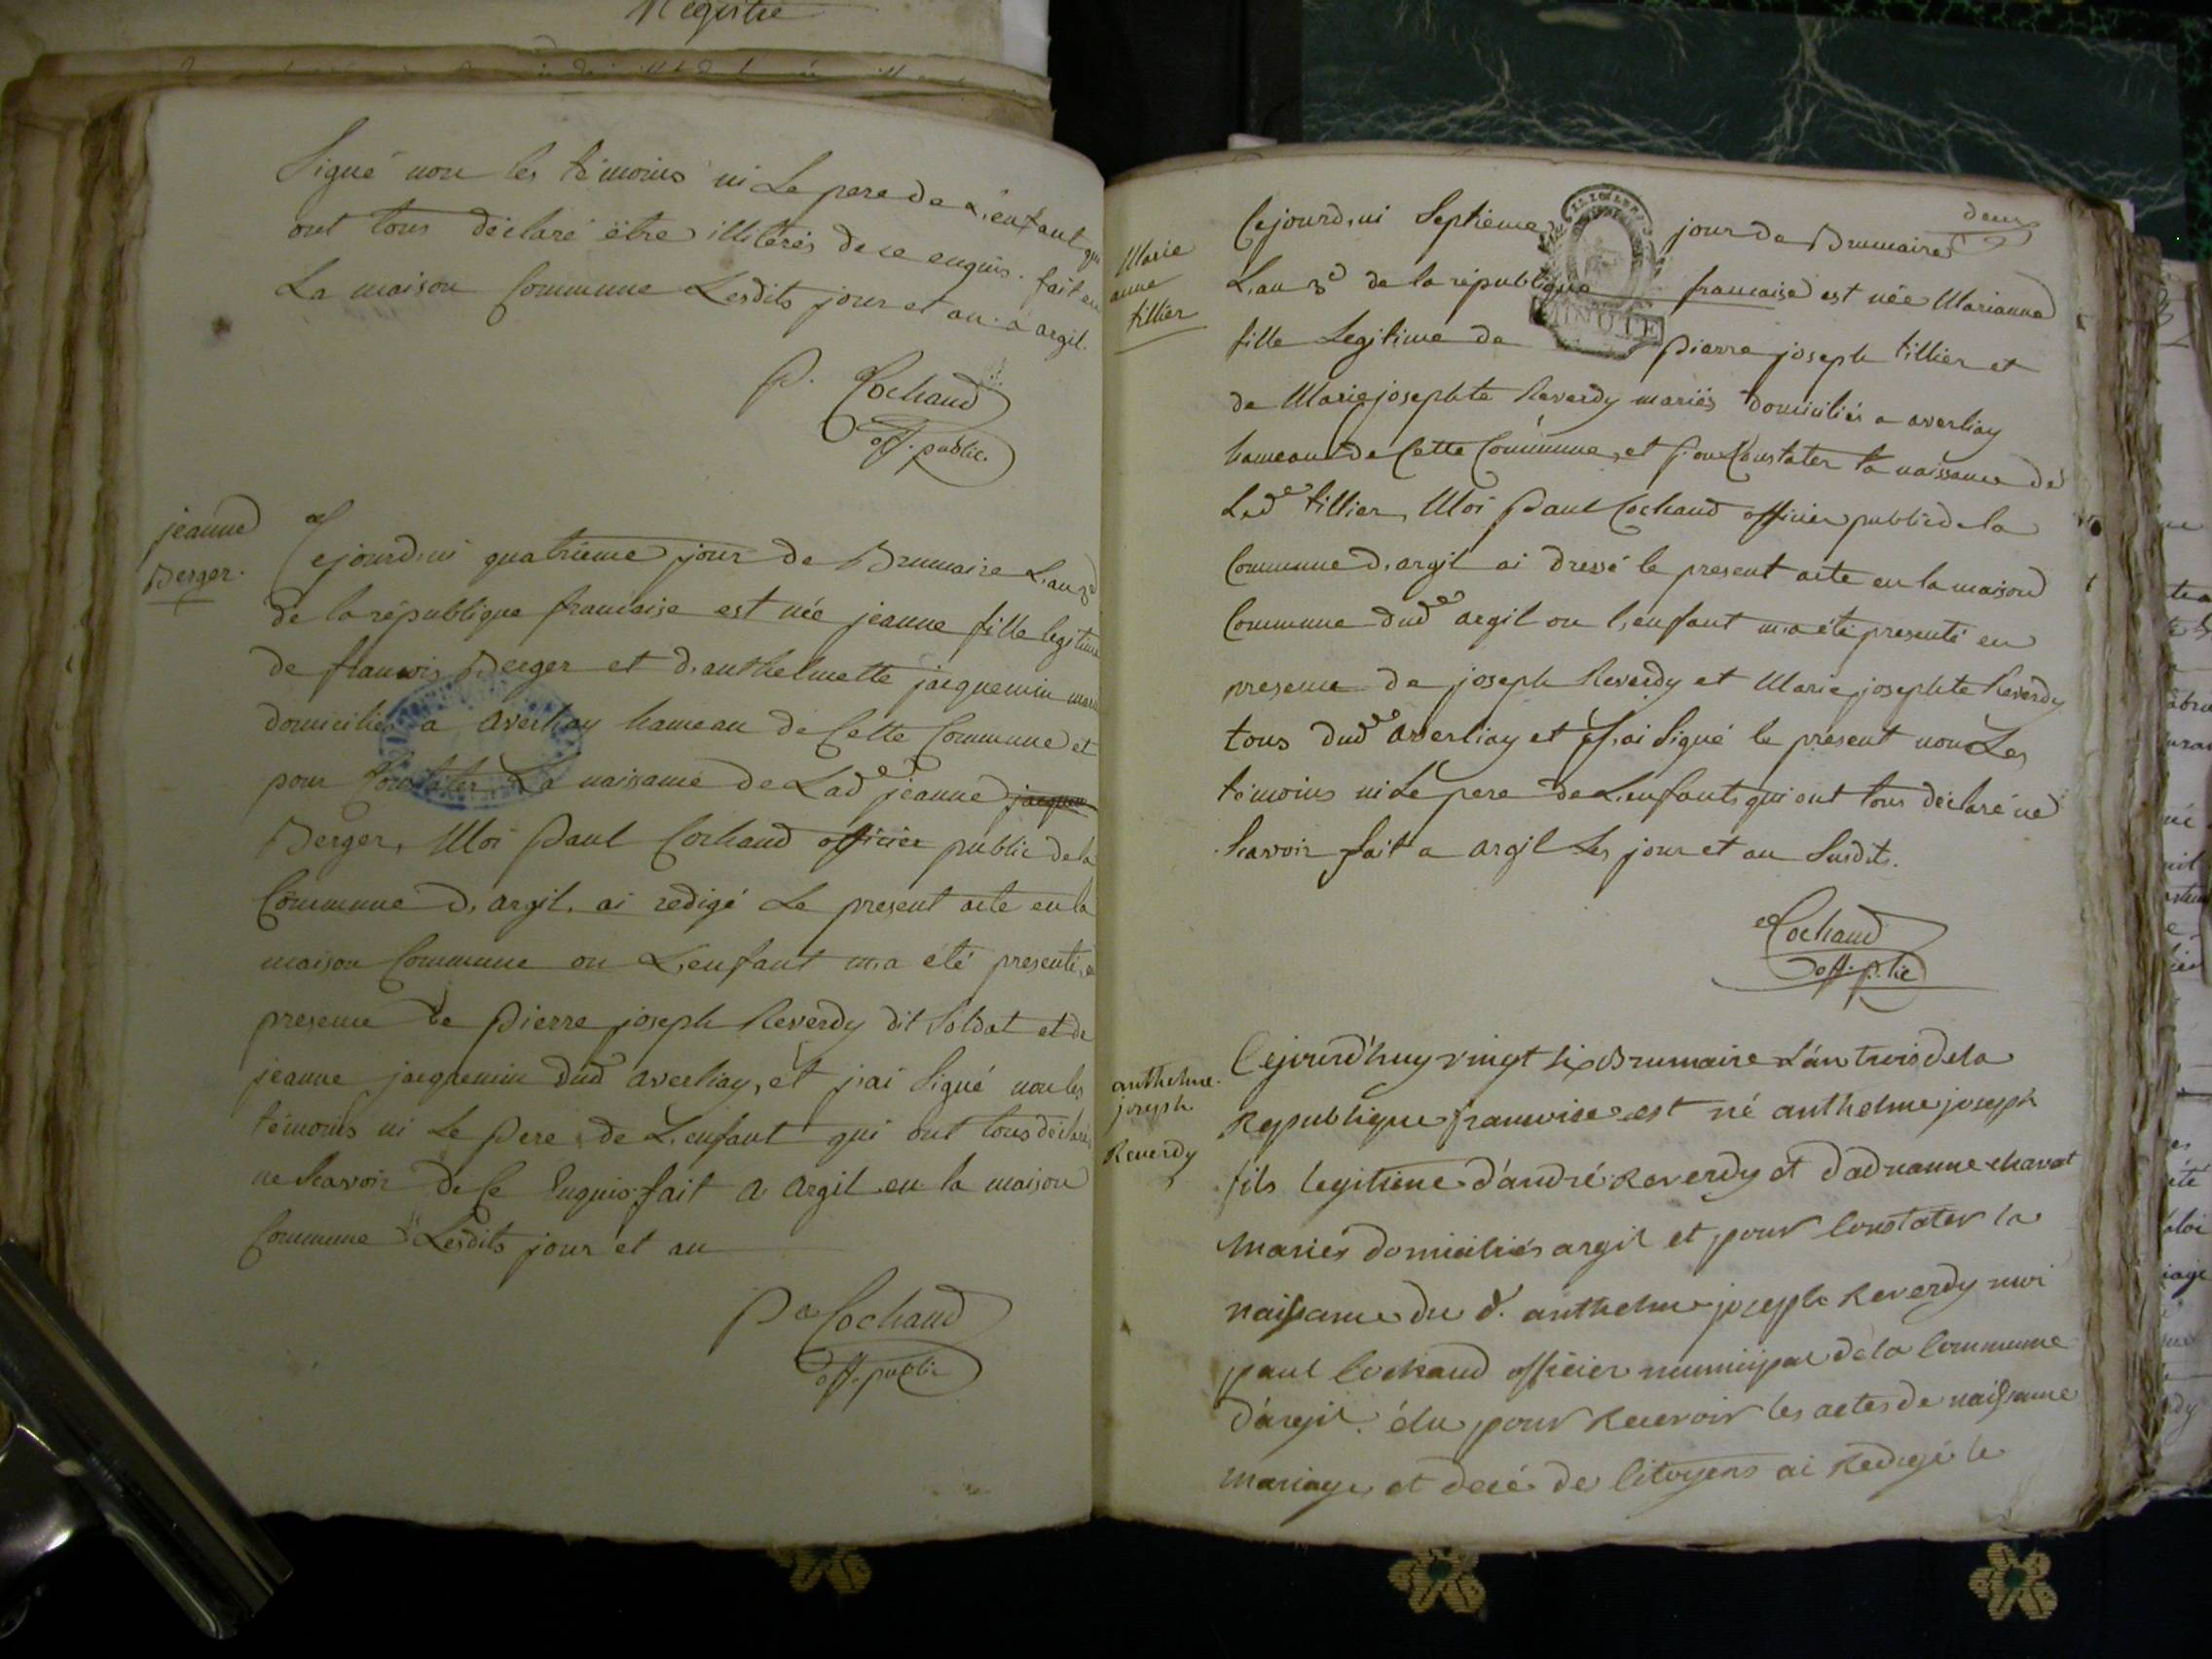 Registre
Signé non les témoins ni Le pere de L'enfant qui
ont tous déclaré être illiterés de ce enquis. fait en
La maison Commune Lesdits jour et an a argil.
P. Cochand
off. public.
jeanne
Berger.
Cejourd'ui quatrieme jour de Brumaire L'an 3e
de la république francaise est née jeanne fille legitime
de francois Berger et d'anthelmette jacquemin mariés
domiciliés a averliay hameau de Cette Commune et
pour Constater La naissance de Lad jeanne jacquem
Berger, Moi Paul Cochand officier public de la
Commune D'argil, ai redigé Le present acte en la
maison Commune ou L'enfant m'a été presenté, en
presence de Pierre joseph Reverdy dit Soldat et de
jeanne jacquemin dud averliay, et j'ai Signé non les
témoins ni Le Pere de L'enfant qui ont tous déclaré
ne Scavoir de Ce Enquis. fait A Argil en la maison
Commune Lesdits jour et an
P Cochand
off. public
deux
Marie
anne
tillier
Cejourd'ui Septieme jour de Brumaire
L'an 3e de la république francaise est née Marianne
MINUTE
fille Legitime de Pierre joseph tillier et
de Marie josephte Reverdy mariés domiciliés a averliay
hameau de Cette Commune, et p.our Constater la naissance de
Lad tillier, Moi Paul Cochand officier public de la
Commune d'argil ai dressé le present acte en la maison
Commune dud argil ou l'enfant m'a été presenté en
presence de joseph Reverdy et Marie josephte Reverdy
tous dud averliay et j'ai Signé le présent non Les
témoins ni Le pere de L'enfant, qui ont tous déclaré ne
Scavoir fait a argil Les jour et an Susdits.
Cochand
off. p.lic
anthelme
joseph
Reverdy
Cejourd'huy vingt six Brumaire L'an trois de la
Republique francoise est né anthelme joseph
fils legitime d'andré Reverdy et d'adrianne chavat
mariés domiciliés argil et pour Constater la
naissance du d. anthelme joseph Reverdy moi
paul Cochand officier municipal de la Commune
d'argil élu pour Recevoir les actes de naissance
mariage et decé des Citoyens ai Redigé le